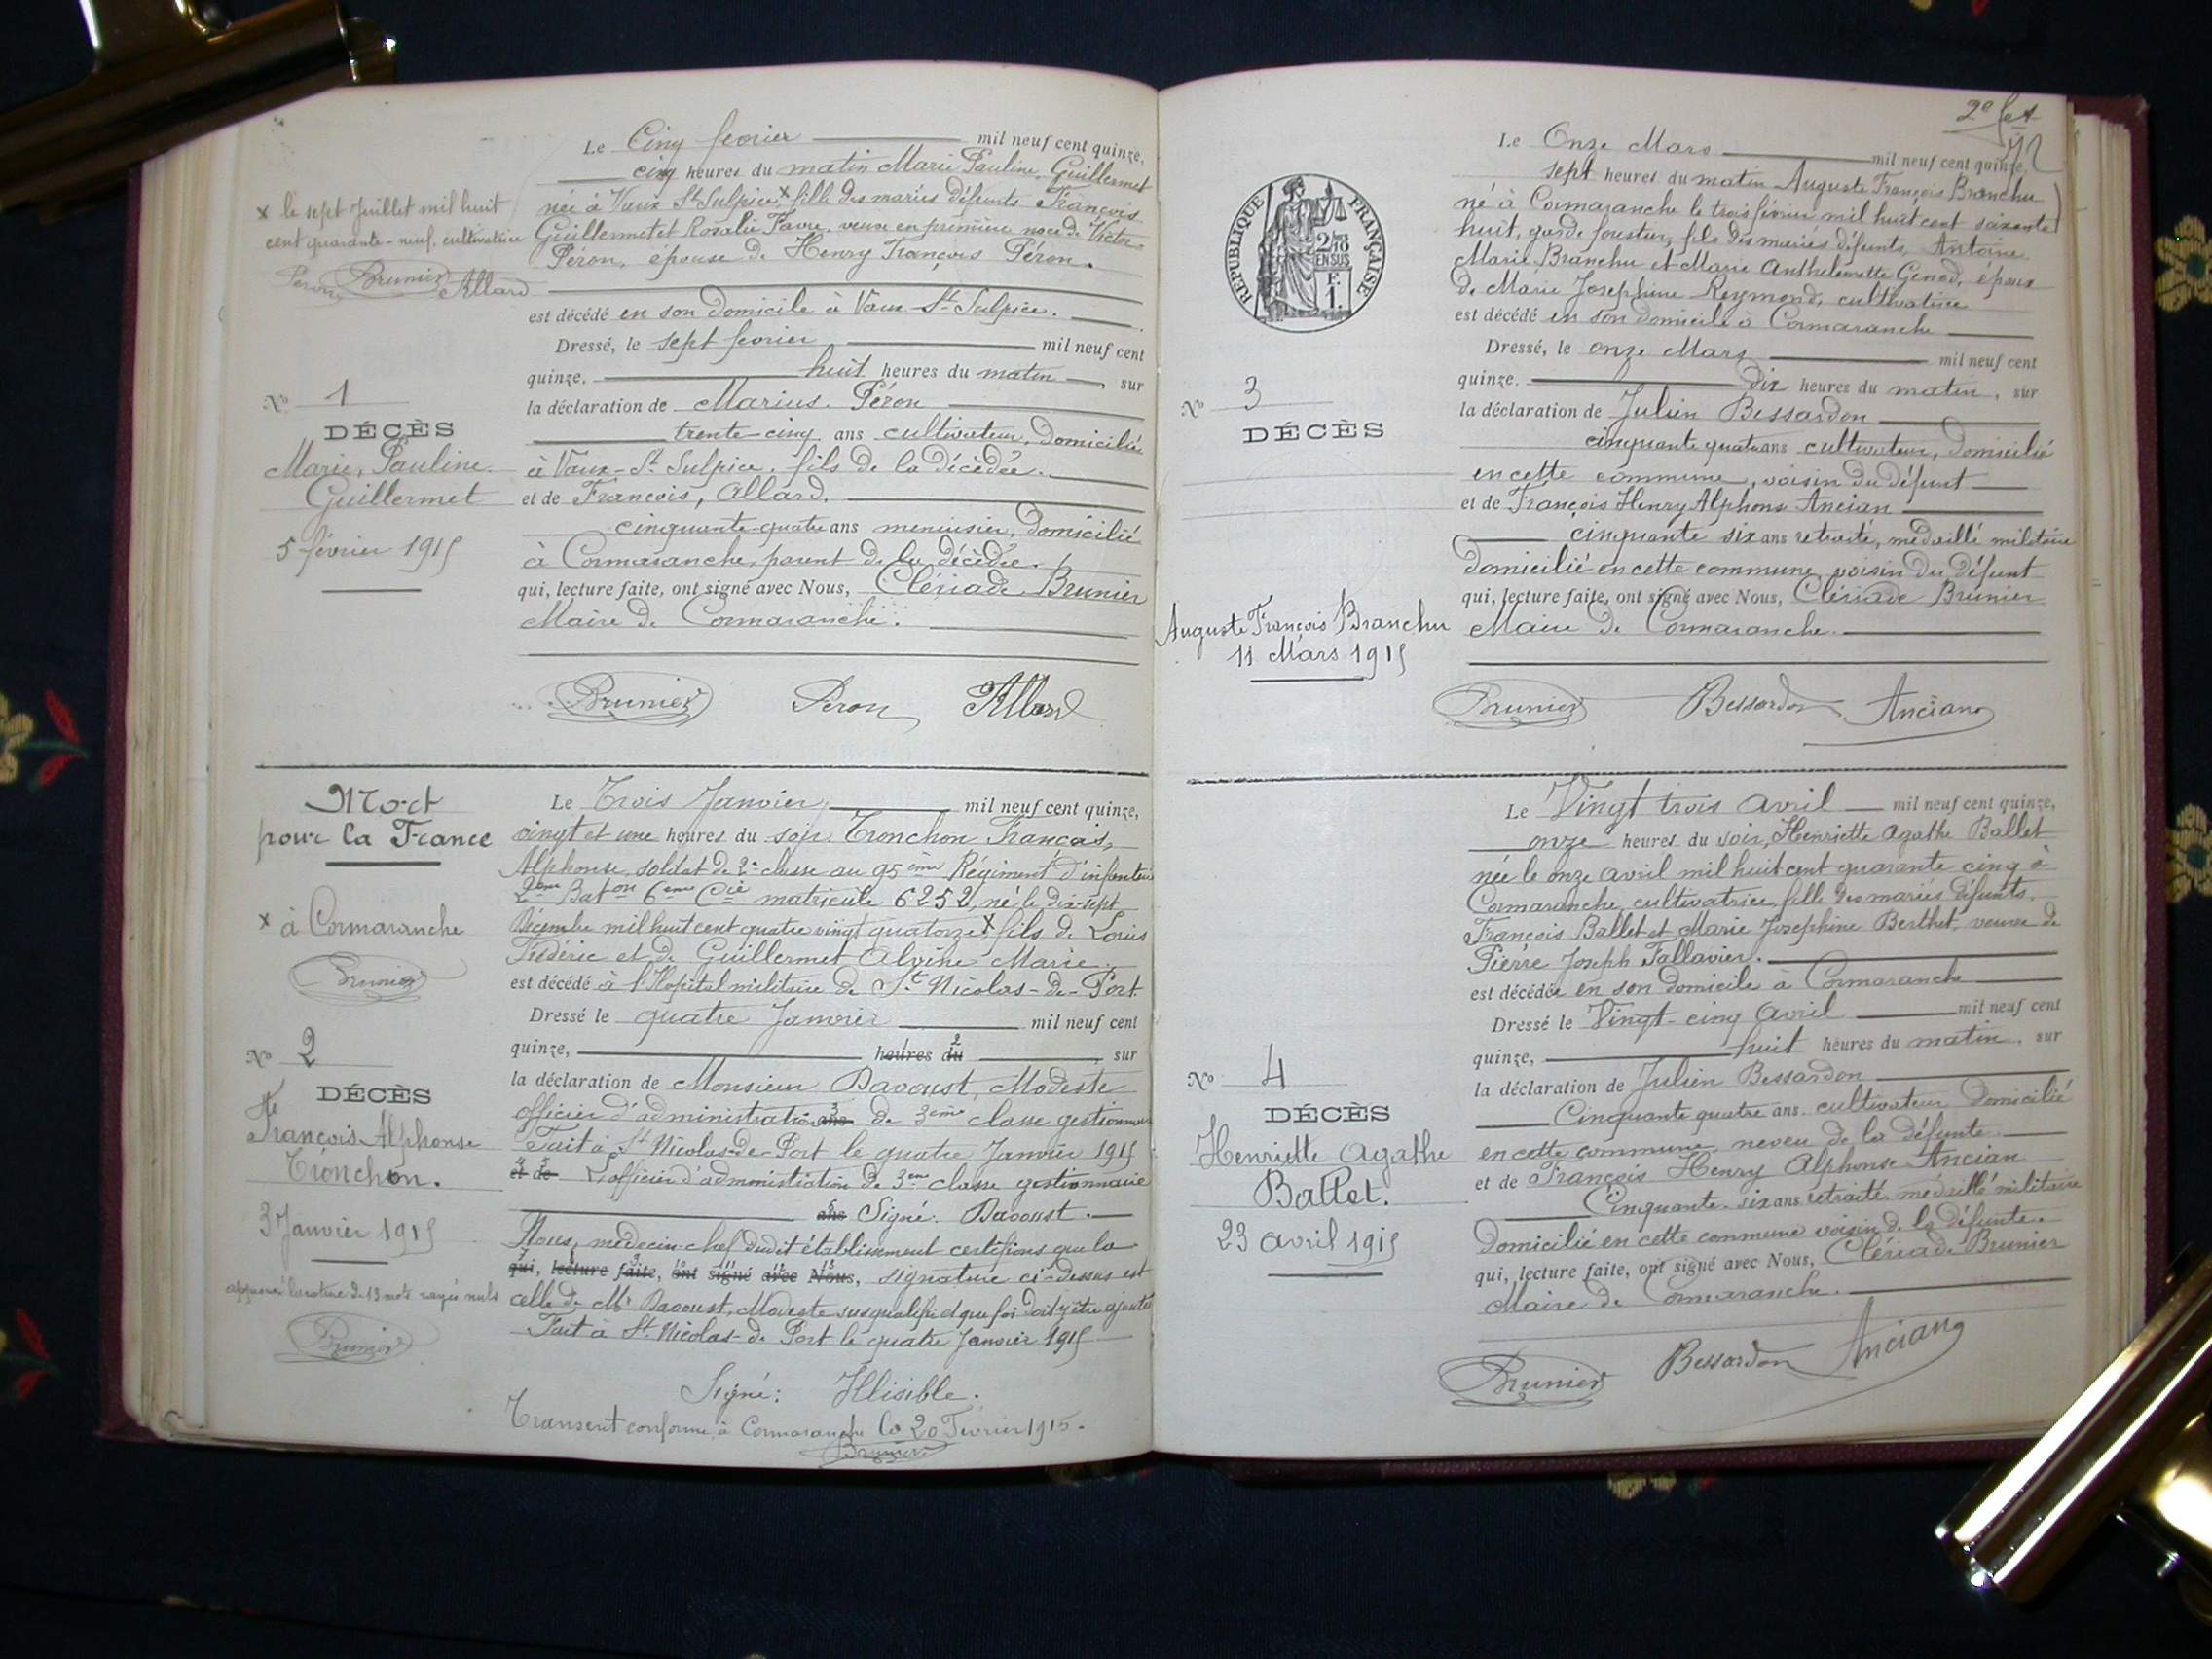 Le Cinq fevrier mil neuf cent quinze,
cinq heures du matin Marie Pauline Guillermet
née à Vaux St Sulpice x fille des mariés défunts François
Guillermet et Rosalie Favre, veuve en première noce de Victor
Péron, épouse de Henry François Péron.
est décédé en son domicile à Vaux-St-Sulpice.
Dressé, le sept fevrier mil neuf cent
quinze, huit heures du matin, sur
la déclaration de Marius Péron
trente-cinq ans cultivateur, domicilié
à Vaux-St Sulpice, fils de la décédée.
et de François, Allard,
cinquante-quatre ans menuisier, domicilié
à Cormaranche, parent de la décédée.
qui, lecture faite, ont signé avec Nous, Clériade Brunier
Maire de Cormaranche.
Brunier Péron FAllard
x le sept Juillet mil huit
cent quarante-neuf, cultivatrice
Péron Brunier Allard
No 1
DÉCÈS
Marie, Pauline
Guillermet
5 février 1915
Mort
pour la France
x à Cormaranche
Brunier
No 2
DÉCÈS
François Alphonse
Tronchon.
3 Janvier 1915
approuvé la rature de 13 mots rayés nuls
Brunier
Le Trois Janvier mil neuf cent quinze,
vingt et une heures du soir Tronchon François,
Alphonse, soldat de 2e classe au 95ème Régiment d'infanterie
2ème Baton 6ème Cie matricule 6252, né le dix-sept
Décembre mil huit cent quatre vingt quatorze x, fils de Louis
Frédéric et de Guillermet Alvine Marie.
est décédé à l'Hopital militaire de St Nicolas-de-Port
Dressé le quatre Janvier mil neuf cent
quinze, heures du sur
la déclaration de Monsieur Davoust, Modeste
officier d'administration ans de 3ème classe gestionnaire
Fait à St Nicolas-de-Port le quatre Janvier 1915
et de L'officier d'administration de 3ème classe gestionnaire
ans Signé: Davoust.
Nous, médecin-chef dudit établissement certifions que la
qui, lecture faite, ont signé avec Nous, signature ci-dessus est
celle de Mr Davoust, Modeste susqualifié et que foi doit y être ajoutée
Fait à St Nicolas-de-Port le quatre Janvier 1915
Signé: Illisible.
Transcrit conforme à Cormaranche le 20 Février 1915.
Brunier
2e
RÉPUBLIQUE FRANÇAISE
2/10
EN SUS
F.
1.
Le Onze Mars mil neuf cent quinze,
sept heures du matin Auguste François Branchu
né à Cormaranche le trois février mil huit cent soixante
huit, garde forestier, fils des mariés défunts, Antoine
Marie Branchu et Marie Anthelmette Genod, époux
de Marie Josephine Reymond, cultivatrice
est décédé en son domicile à Cormaranche
Dressé, le onze Mars mil neuf cent
quinze. Dix heures du matin, sur
la déclaration de Julien Bessardon
cinquante quatre ans cultivateur, domicilié
en cette commune, voisin du défunt
et de François Henry Alphonse Ancian
cinquante six ans retraité, médaillé militaire
domicilié en cette commune voisin du défunt
qui, lecture faite, ont signé avec Nous, Clériade Brunier
Maire de Cormaranche.
Brunier Bessardon Ancian
No 3
DÉCÈS
Auguste François Branchu
11 Mars 1915
Le Vingt trois avril mil neuf cent quinze,
onze heures du soir, Henriette Agathe Ballet
née le onze avril mil huit cent quarante cinq à
Cormaranche, cultivatrice, fille des mariés défunts,
François Ballet et Marie Josephine Berthet, veuve de
Pierre Joseph Fallavier.
est décédée en son domicile à Cormaranche
Dressé le Vingt-cinq avril mil neuf cent
quinze, huit heures du matin, sur
la déclaration de Julien Bessardon
Cinquante quatre ans cultivateur domicilié
en cette commune neveu de la défunte
et de François Henry Alphonse Ancian
Cinquante-six ans retraité médaillé militaire
domicilié en cette commune voisin de la défunte.
qui, lecture faite, ont signé avec Nous, Clériade Brunier
Maire de Cormaranche.
Brunier Bessardon Ancian
No 4
DÉCÈS
Henriette Agathe
Ballet.
23 avril 1915